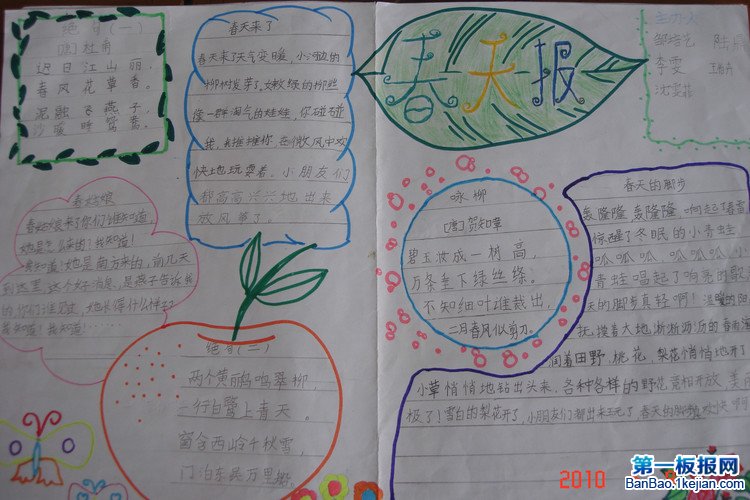 绝句(一)
[唐]杜甫
迟日江山丽,
春风花草香。
泥融飞燕子,
沙暖睡鸳鸯。
春天来了
春天来了天气变暖,小河边的
柳树发芽了,嫩绿的柳些
像一群淘气的娃娃,你碰碰
我,我推推你,在微风中欢
快地玩耍着。小朋友们
都高高兴兴地出来
放风筝了。
春天报
主办人
李雯
春姑娘
春姑娘来了你们谁知道,
她是怎么来的?我知道!
我知道!她是南方来的,前几天
到这里,这个好消息,是燕子告诉我
的你们谁见过,她长得什么样子?
我知道!我知道!……
绝句(二)
两个黄鹂鸣翠柳,
一行白鹭上青天。
窗含西岭千秋雪,
门泊东吴万里船。
咏柳
[唐]贺知章
碧玉妆成一树高,
万条垂下绿丝绦。
不知细叶谁裁出,
二月春风似剪刀。
春天的脚步
轰隆隆,轰隆隆,响起了春雷
惊醒了冬眠的小青蛙,
呱呱,呱呱,小
青蛙唱起了响亮的歌
天的脚步真轻啊!温暖的阳
抚摸着大地,淅淅沥沥的春雨滋
润着田野,桃花,梨花悄悄地开了
小草悄悄地钻出头来,各种各样的野花竞相开放,美丽
极了!雪白的梨花开了,小朋友们都出来玩了,春天的脚步欢快啊
2010
第一板报网
BanBao.1kejian.com